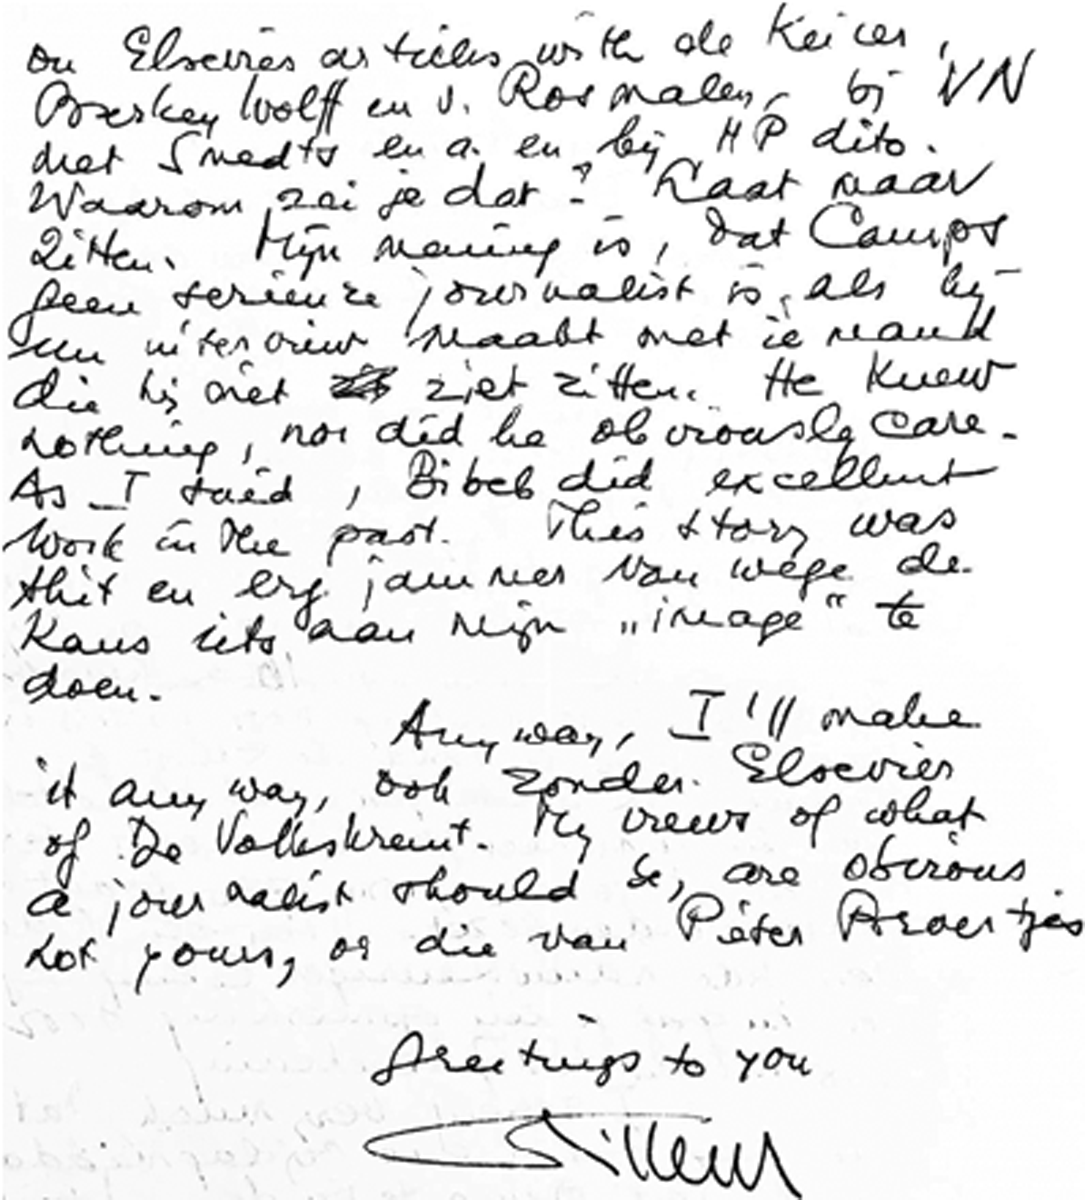 on Elseviers articles with de Keizer,
Boerkey Wolff en v. Rosmalen, bij VN
met Smedts e.a. en bij HP dito.
Waarom zei je dat? Laat maar
zitten. Mijn mening is, dat Camps
geen serieuze journalist is, als hij
een interview maakt met iemand
die hij niet ziet zitten. He knew
nothing, nor did he obviously care.
As I said, Bibeb did excellent
work in the past. This story was
shit en erg jammer vanwege de
kans iets aan mijn „image" te
doen.
Anyway, I'll make
it any way, ook zonder Elsevier
of De Volkskrant. My views of what
a journalist should be, are obvious
not yours, or die van Pieter Broertjes
Greetings to you
Willem